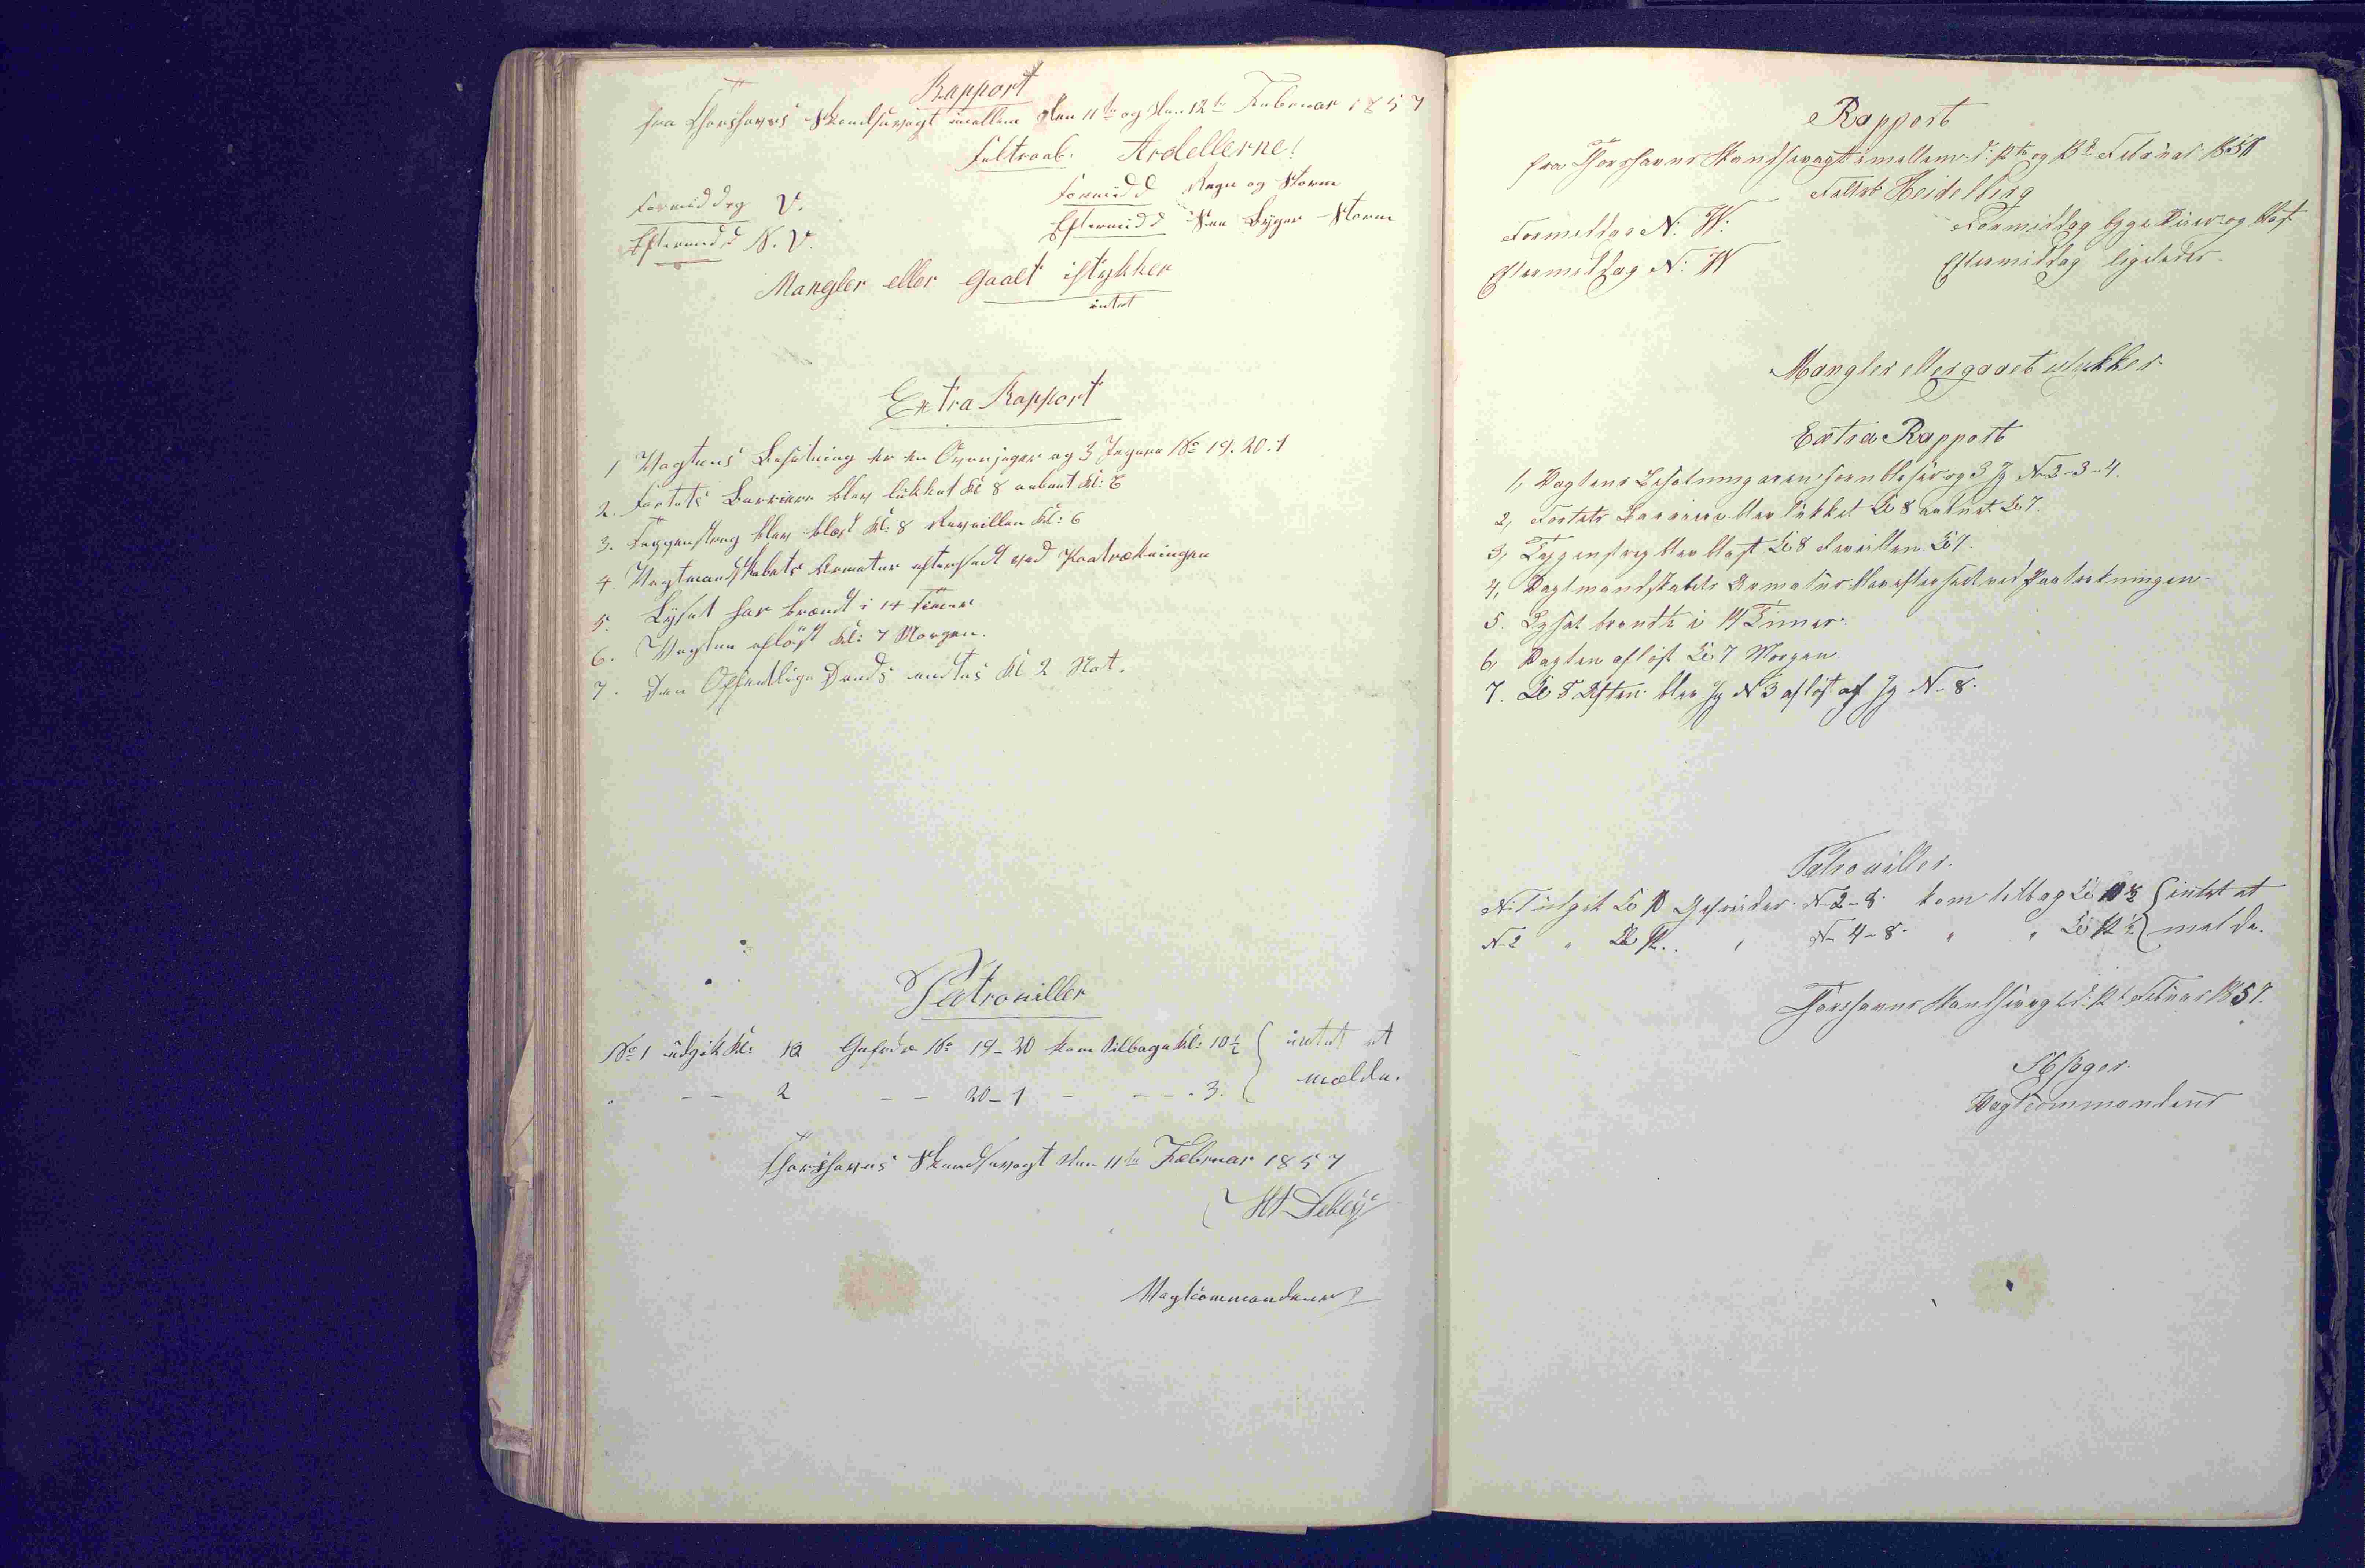 Rapport
fra Thorshavns Skandsevagt imellem den 11te og den 12te Februar 1857
Feltraab. Ardellerne!
Formiddag V. Formidd Regn og Storm
Eftermidd N.V. Eftermidd Snee Byger Storm
Mangler eller gaaet istykker
intet
Extra Rapport
1 Vagtens Besætning er en Overjæger og 3 Jægere No 19. 20. 1
2. Fortets Barriere blev lükket Kl 8 aabnet Kl: 6
3. Tappenstreg blev blæst Kl: 8 Reveillen Kl: 6
4. Vagtmandskabets Armatur efterseet ved Paatrækningen
5. Lyset har brændt i 14 Timer
6. Vagten afløst Kl: 7 Morgen.
7. Den Offentlige Dands endtes Kl 2 Nat.
Patrouiller
No 1 üdgik Kl: 10 Gefrdr No 19-20 kom tilbage Kl: 10½ intet at
" - - 2 - - 20-1 - - - 3. melde.
Thorshavns Skandsevagt den 11te Februar 1857
Vagtcommandeur
Rapport
fra Thorshavns Skandsevagt imellem d: 12te og 13de Februar 1857
Feltrb Heidelberg
Formiddag N: W. Formiddag Byge Diser og blæst
Eftermiddag N: W Eftermiddag ligeledes
Mangler eller gaaet istykker
Extra Rapport
1, Vagtens Besætning er en Hornblæser og 3 Jg N-2-3-4.
2, Fortets Barriere blev lükket Kl 8 aabnet Kl 7.
3, Tappenstreg blev blæst Kl 8 Reveillen Kl 7.
4, Vagtmandskabets Armatür blev efterseet ved Paatrekningen
5. Lyset brændte i 14 Timer.
6, Vagten afløst Kl 7 Morgen.
7. Kl 5 Aften blev Jg N 3 afløst af Jg N-8.
Patrouiller.
N-1 üdgik Kl 10 Gefreider N-2-8. kom tilbage Kl 10½ intet at
N-2 " Kl 12. " N-4-8. " " Kl 12½ melde.
Thorshavns Skandsevagt d: 12te Februar 1857.
Vagtcommandeur